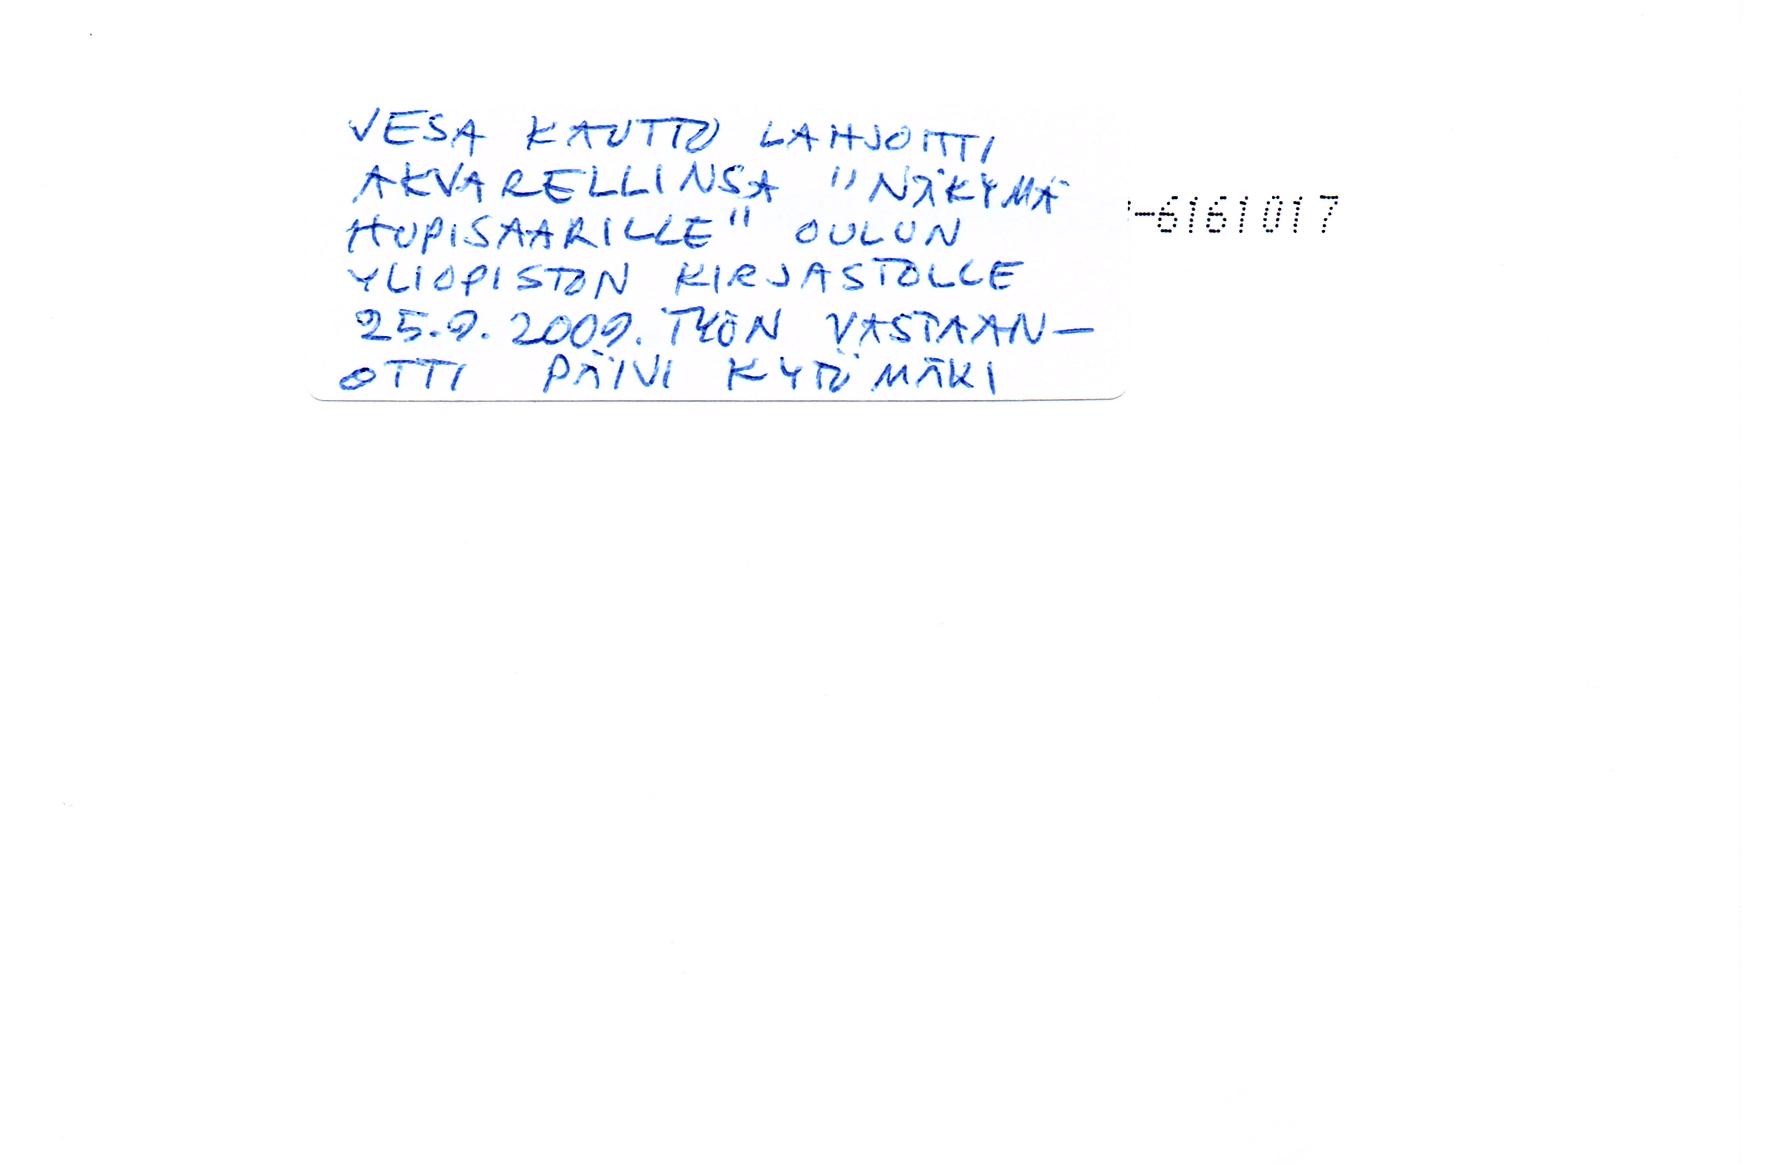 VESA KAUTTO LAHJOITTI
AKVARELLINSA "NÄKYMÄ
HUPISAARILLE" OULUN
YLIOPISTON KIRJASTOLLE
25.9.2009. TYÖN VASTAAN-
OTTI PÄIVI KYTÖMÄKI
-6161017